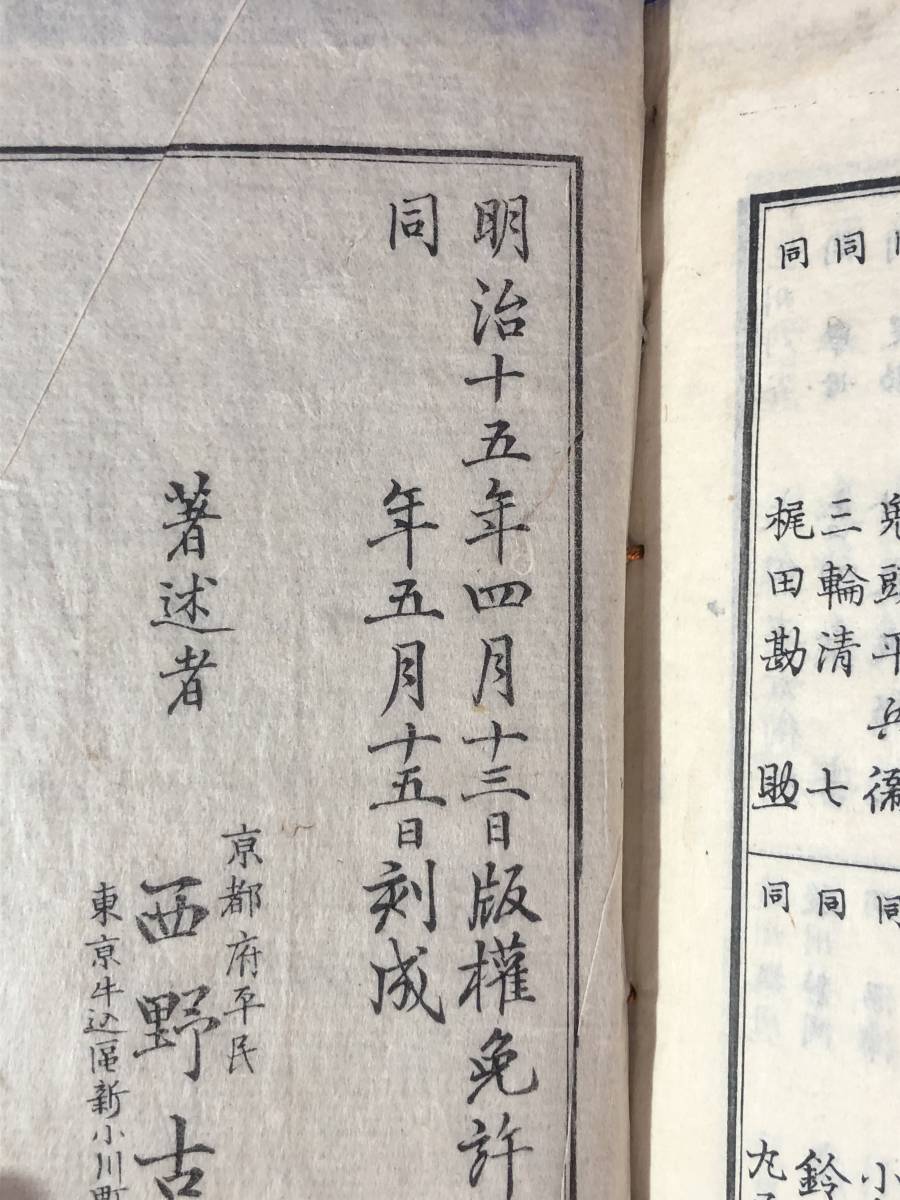 同
同
兒頭平兵衞
三輪清七
梶田勘助
同
同
同
小
鈴
明治十五年四月十三日版權免許
同年五月十五日刻成
著述者
京都府平民
西野古
東京牛込區新小川町